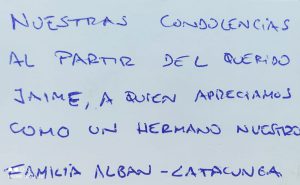 NUESTRAS CONDOLENCIAS
AL PARTIR DEL QUERIDO
JAIME, A QUIEN APRECIAMOS
COMO UN HERMANO NUESTRO
FAMILIA ALBAN-LATACUNGA